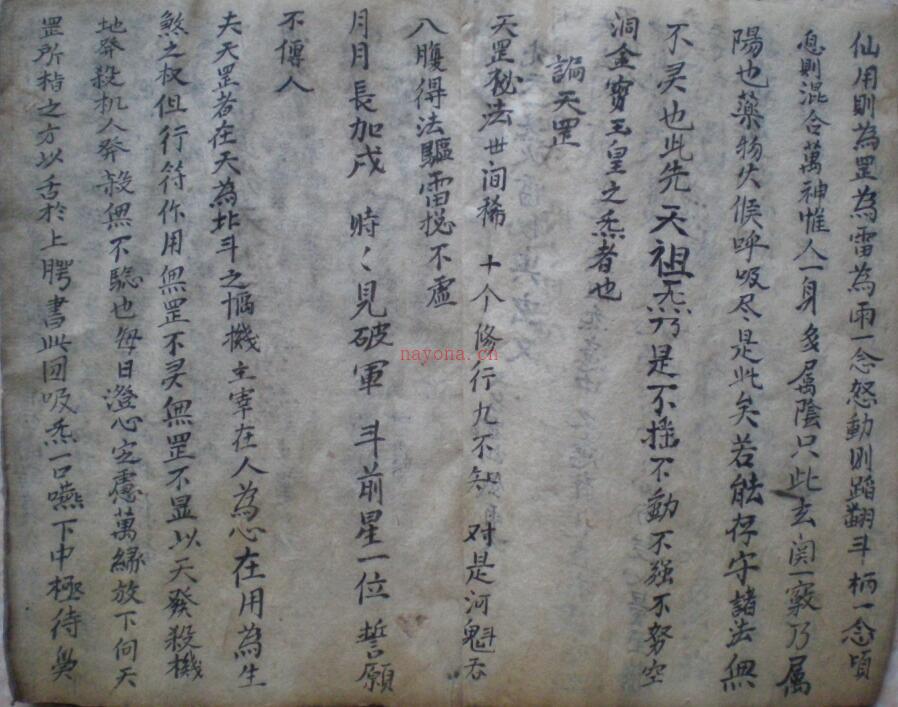 仙用則為罡為雷為雨一念怒動則蹈翻斗柄一念頃
息則混合萬神惟人一身多屬陰只此玄関一竅乃属
陽也藥物火候呼吸尽是此矣若能存守諸法無
不灵也此先天祖炁乃是不搖不動不强不努空
洞金寶玉皇之炁者也
謌天罡
天罡秘法世间稀 十个修行九不知 对是河魁吞
八腹得法驅雷㧞不虛
月月長加戌 時々見破軍 斗前星一位 誓願
不傳人
夫天罡者在天為北斗之樞機主宰在人為心在用為生
煞之权但行符作用無罡不灵無罡不显以天發殺機
地發殺机人發殺無不驗也每日澄心定慮萬緣放下向天
罡所指之方以舌於上腭書此囙吸炁一口嚥下中極待
nayona.cn